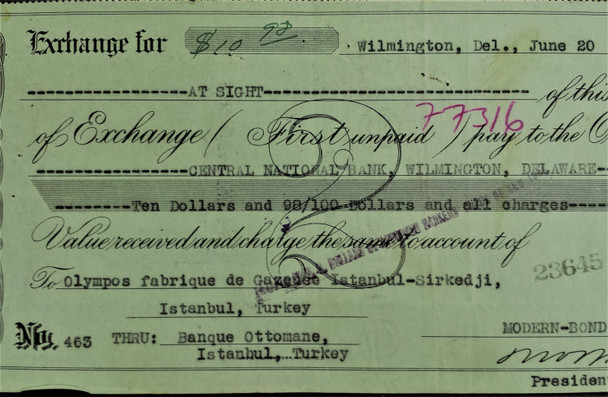 Exchange for $10 98. Wilmington, Del., June 20
AT SIGHT of this
77316
of Exchange ( First unpaid ) pay to the O
CENTRAL NATIONAL BANK, WILMINGTON, DELAWARE
Ten Dollars and 98/100 Dollars and all charges
Value received and charge the same to account of
23645
To Olympos fabrique de Gazeuse Istanbul-Sirkedji,
Istanbul, Turkey
No. 463 THRU: Banque Ottomane,
Istanbul, Turkey
MODERN-BOND
Presiden
2